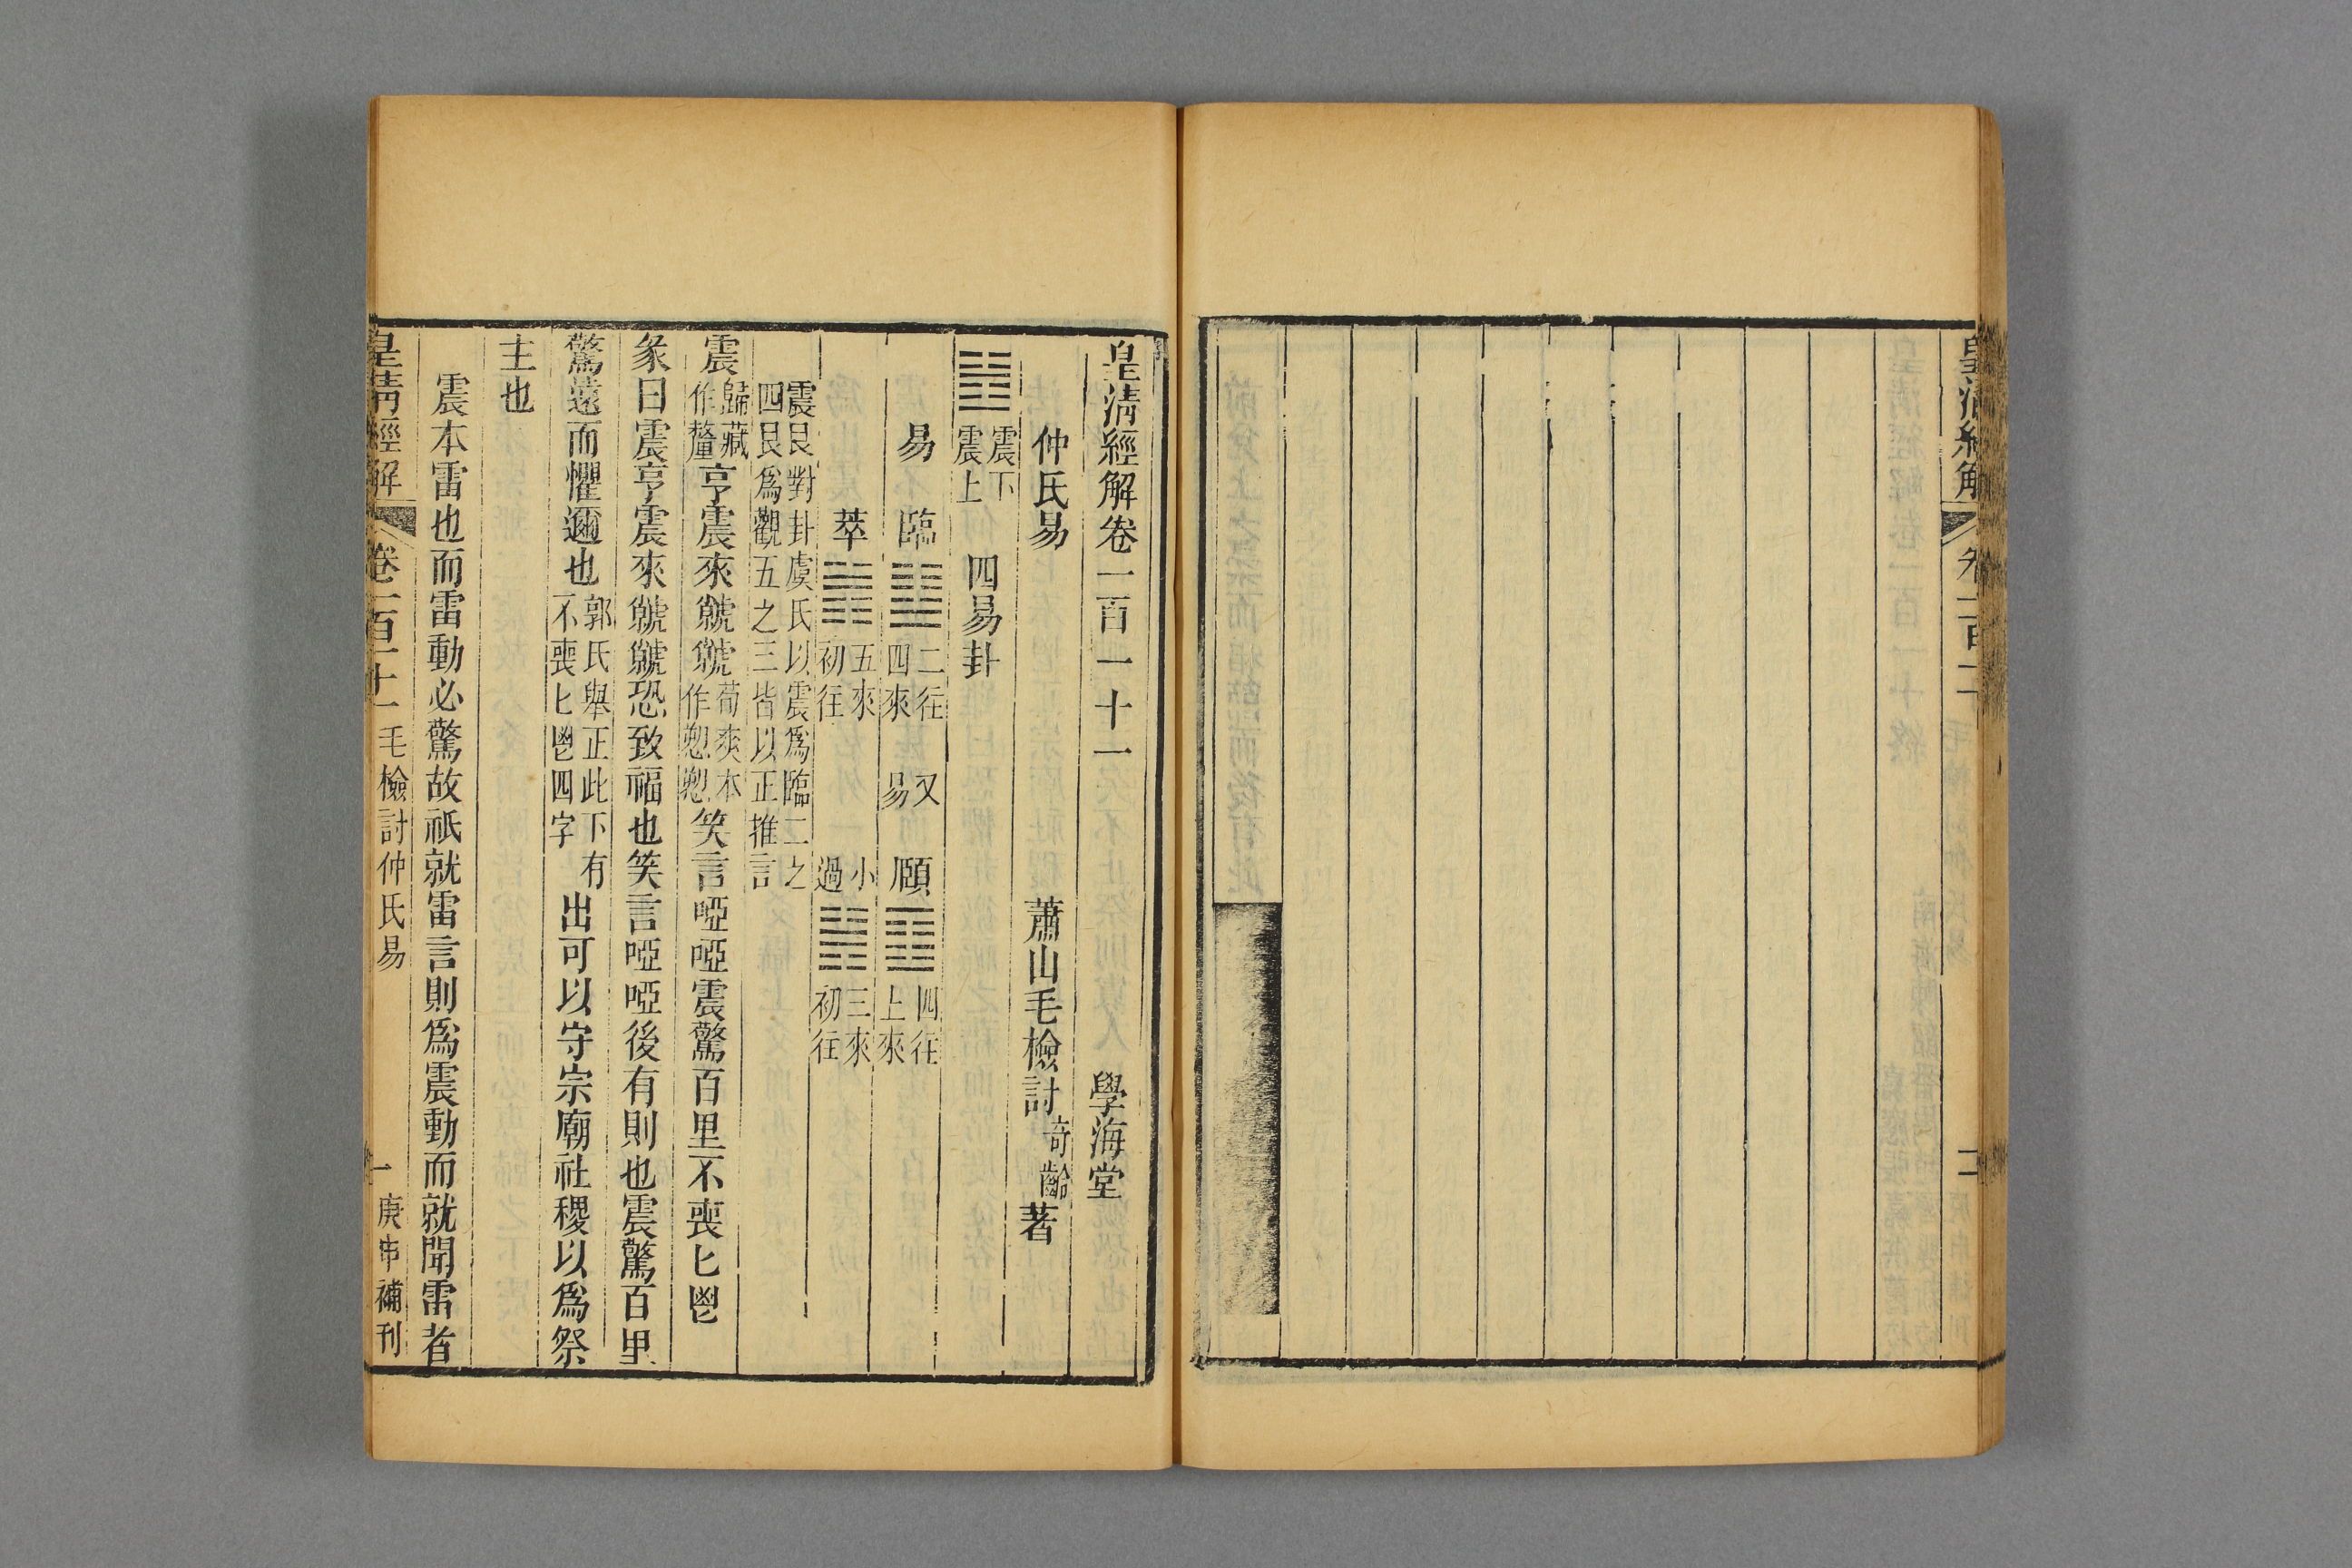 皇清經解
卷一百一十
二
皇清經解卷一百一十一
學海堂
仲氏易
蕭山毛檢討奇齡著
震下
震上
四易卦
易
臨
二往
四來
又
易
頤
四往
上來
萃
五來
初往
小
過
三來
初往
震艮對卦虞氏以震爲臨二之
四艮爲觀五之三皆以正推言
震歸藏
作釐亨震來虩虩荀爽本
作愬愬笑言啞啞震驚百里不喪匕鬯
彖曰震亨震來虩虩恐致福也笑言啞啞後有則也震驚百里
驚遠而懼邇也郭氏舉正此下有
不喪匕鬯四字出可以守宗廟社稷以爲祭
主也
震本雷也而雷動必驚故祇就雷言則爲震動而就聞雷者
皇清經解
卷一百一十一
毛檢討仲氏易
一
庚申補刊